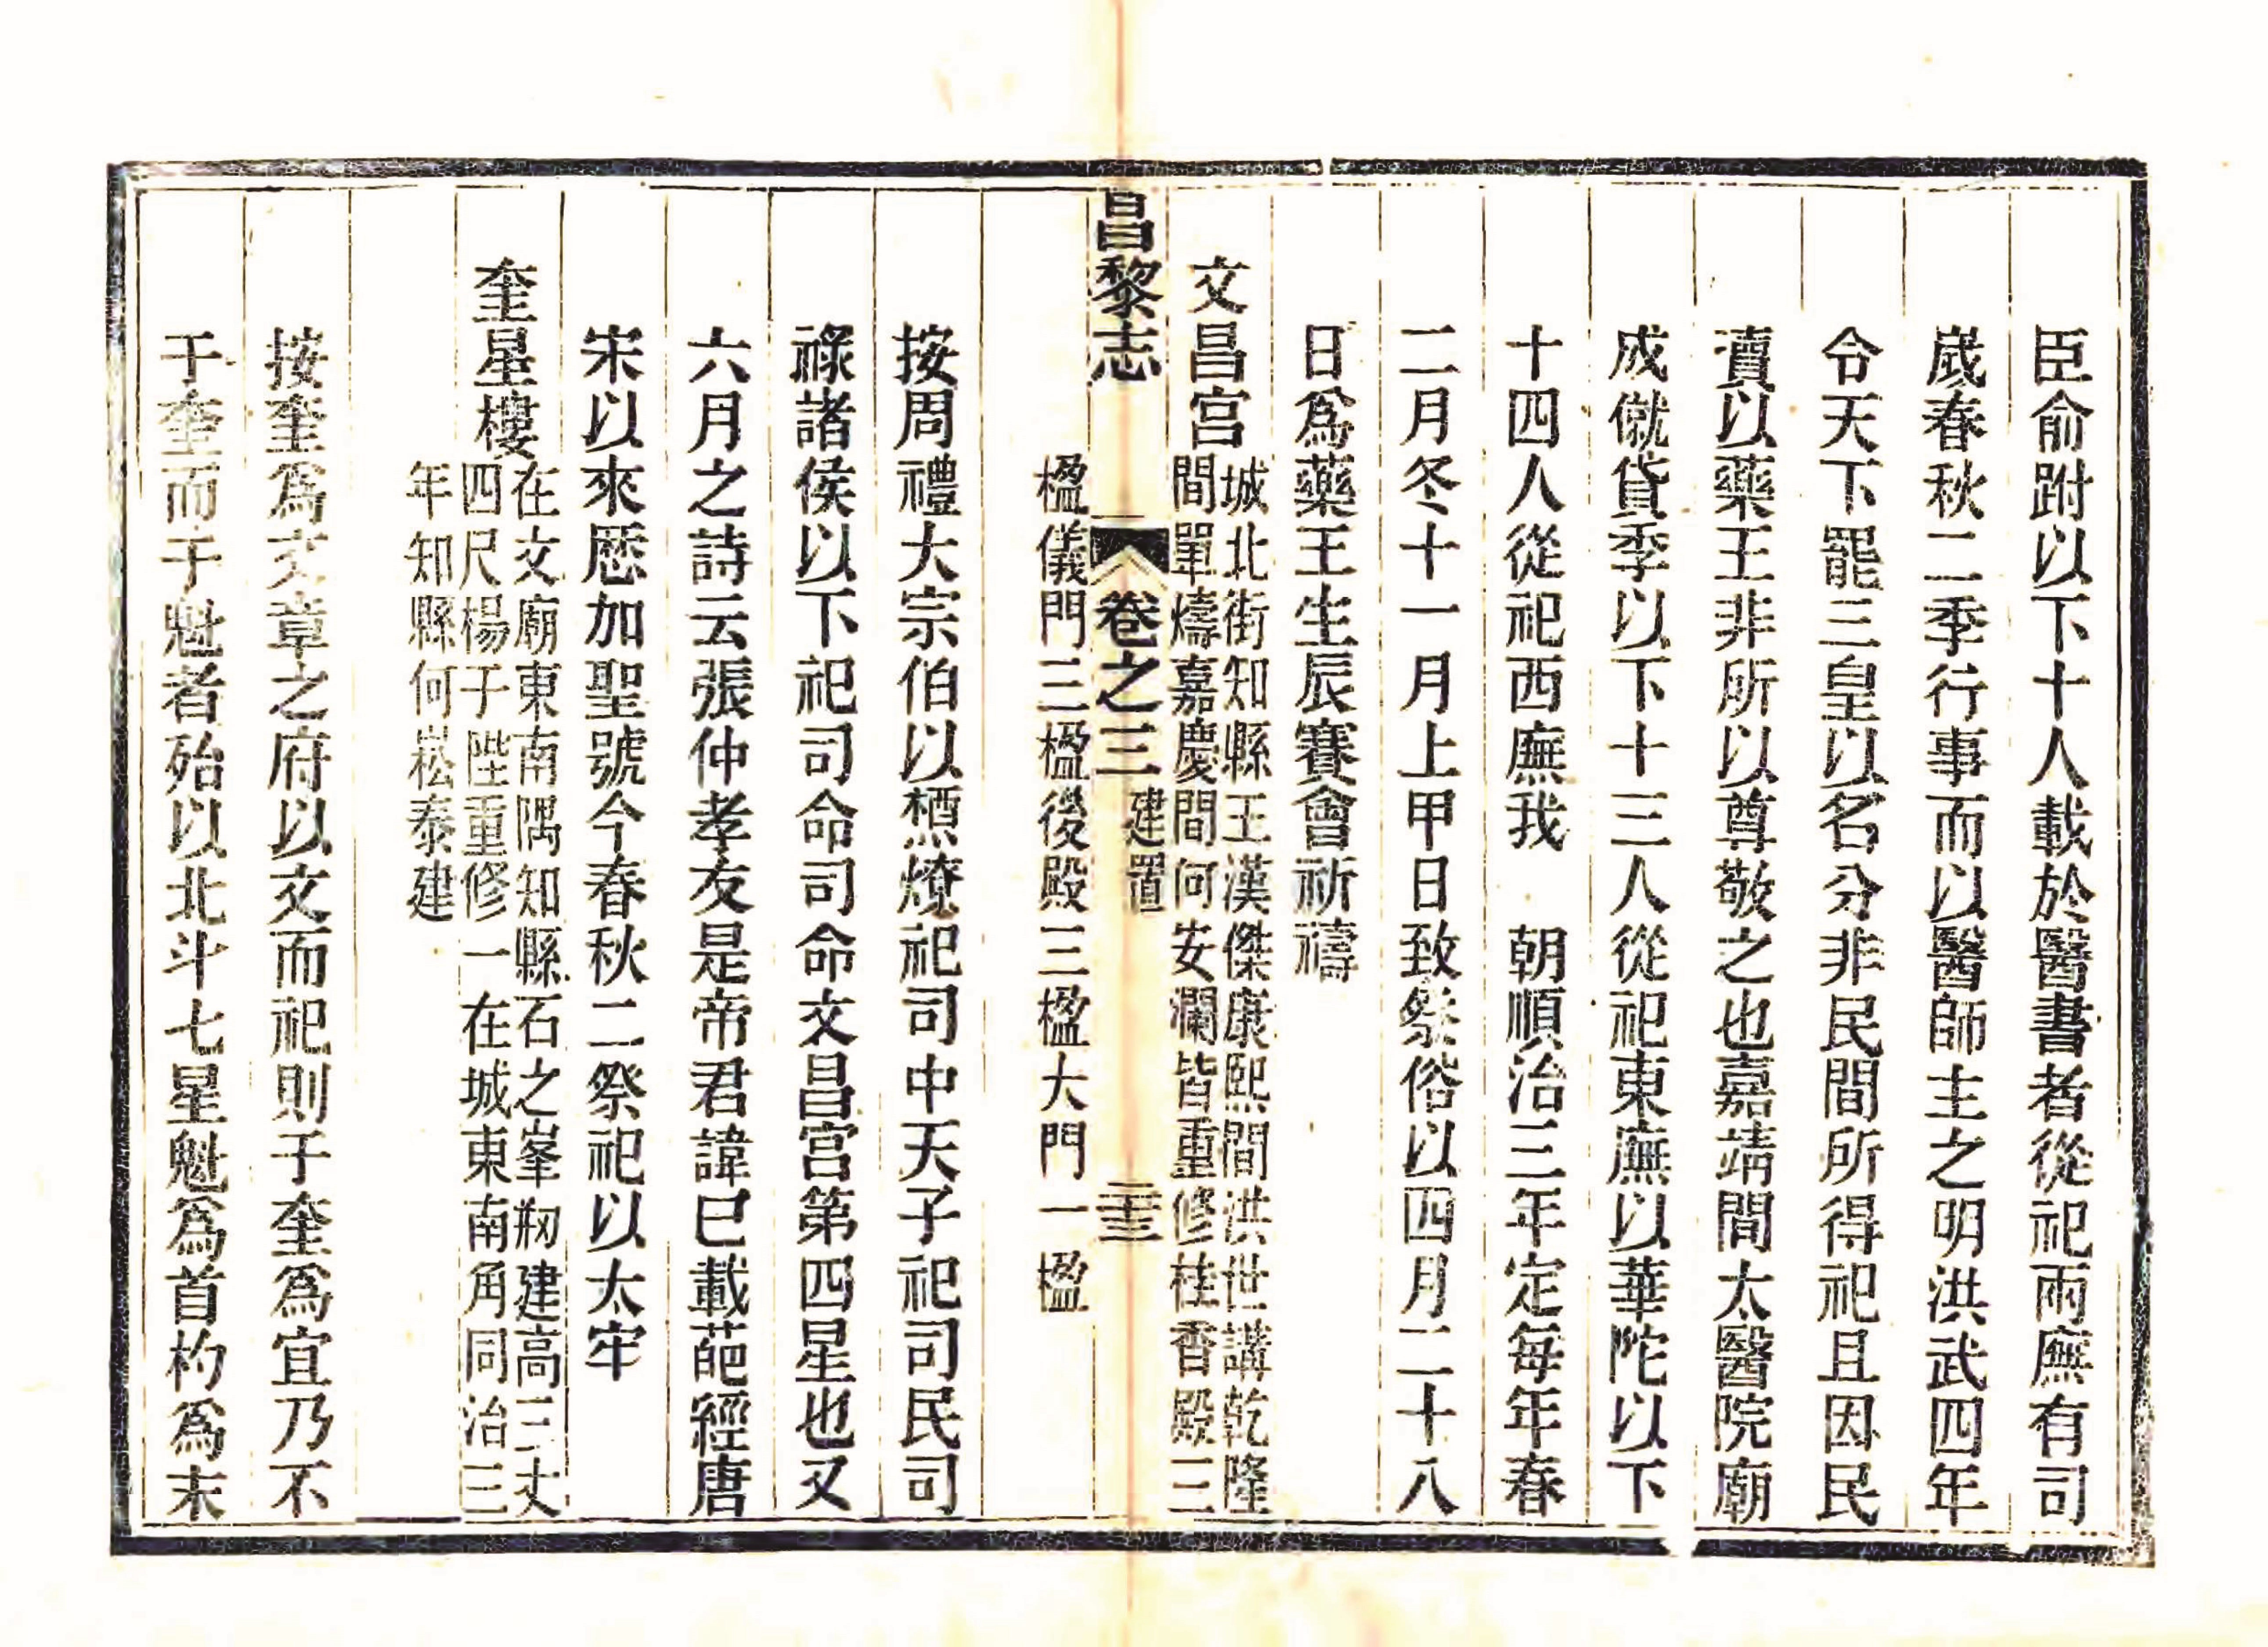 臣俞跗以下十人載於醫書者從祀兩廡有司
歲春秋二季行事而以醫師主之明洪武四年
令天下罷三皇以名分非民間所得祀且因民
瀆以藥王非所以尊敬之也嘉靖間太醫院廟
成僦貸季以下十三人從祀東廡以華陀以下
十四人從祀西廡我　朝順治三年定每年春
二月冬十一月上甲日致祭俗以四月二十八
日爲藥王生辰賽會祈禱
文昌宮
城北街知縣王漢傑康熙間洪世講乾隆
間單燽嘉慶間何安瀾皆重修桂香殿三
昌黎志
卷之三
建置
二十三
楹儀門三楹後殿三楹大門一楹
按周禮大宗伯以槱燎祀司中天子祀司民司
祿諸侯以下祀司命司命文昌宮第四星也又
六月之詩云張仲孝友是帝君諱巳載葩經唐
宋以來歷加聖號今春秋二祭祀以太牢
奎星樓
在文廟東南隅知縣石之峯剏建高三丈
四尺楊子陛重修一在城東南角同治三
年知縣何崧泰建
按奎爲文章之府以文而祀則于奎爲宜乃不
于奎而于魁者殆以北斗七星魁爲首杓爲末